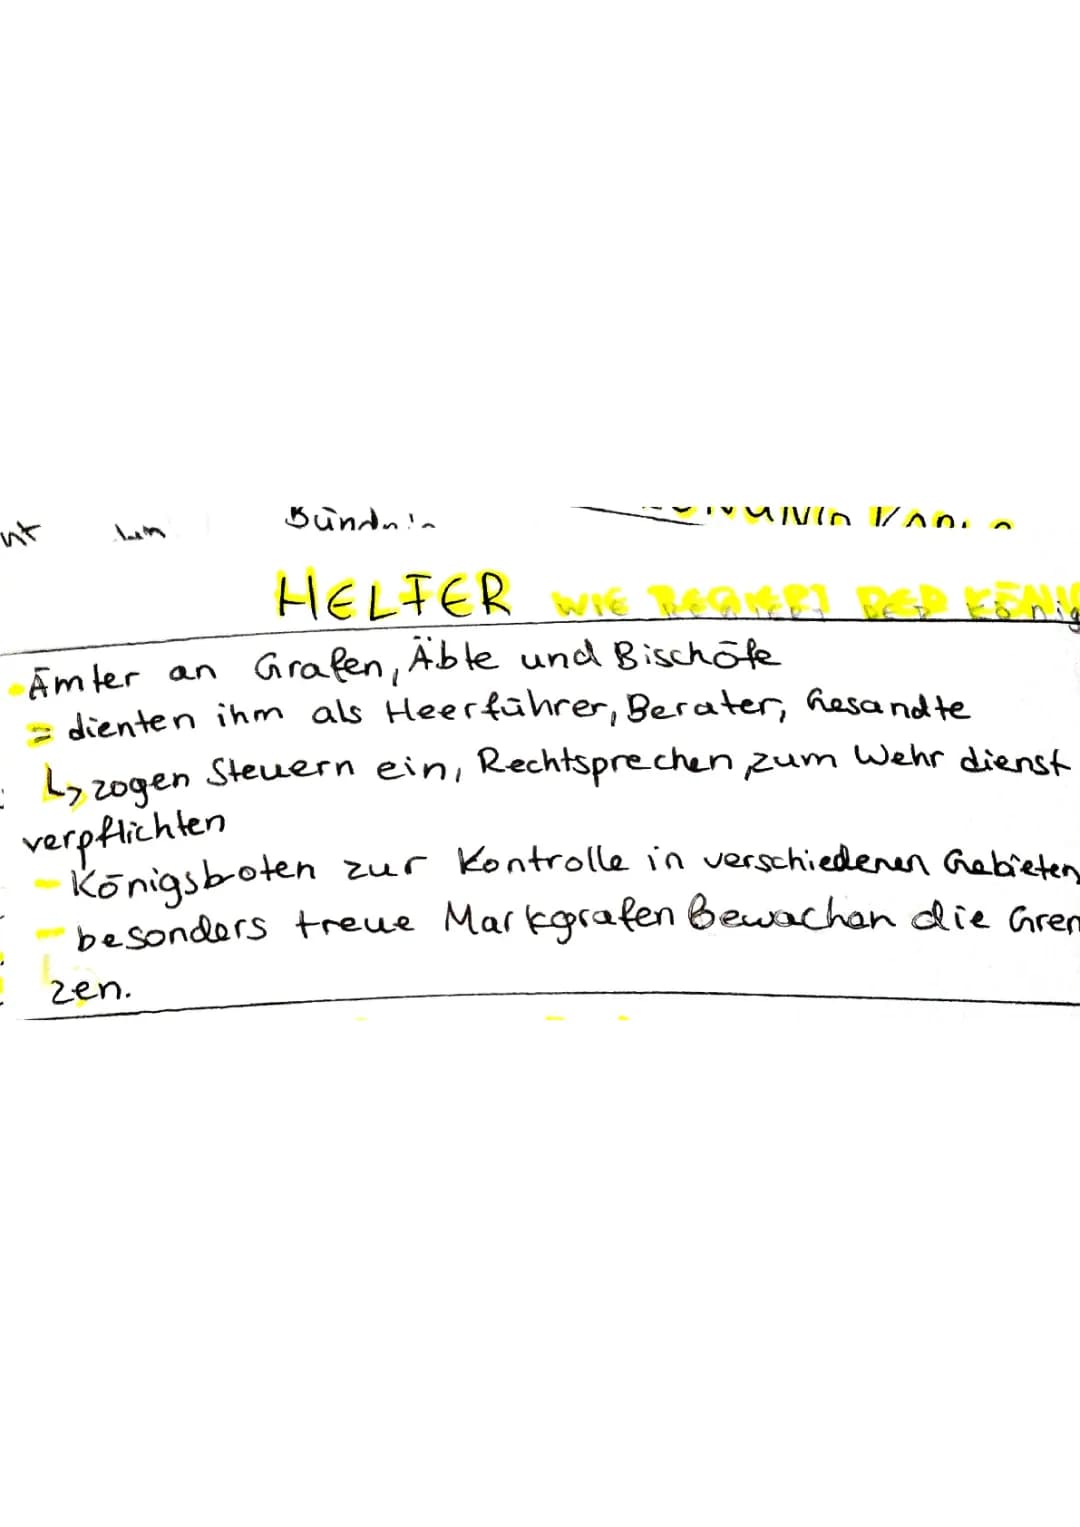 Bündnis
HELFER WIE REGIERT DER KÖNIG
- Ämter an Grafen, Äbte und Bischöfe
= dienten ihm als Heerführer, Berater, Gesandte
↳ zogen Steuern ein, Rechtsprechen, zum Wehr dienst
verpflichten
- Königsboten zur Kontrolle in verschiedenen Gebieten
- besonders treue Markgrafen Bewachen die Gren
zen.